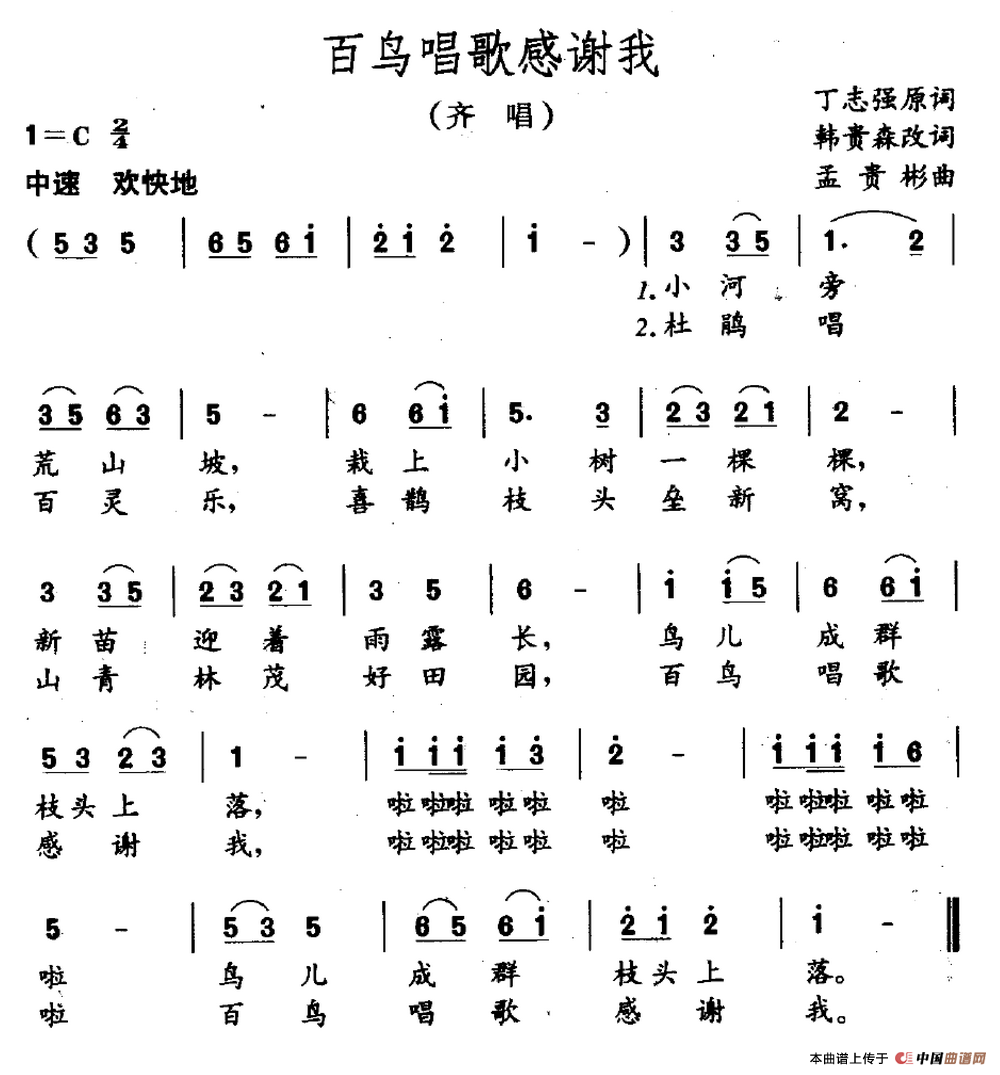 百鸟唱歌感谢我
（齐 唱）
1=C 2/4
中速 欢快地
丁志强原词
韩贵森改词
孟贵彬曲
( 5 3 5 | 6 5 6 i | 2̇ i 2̇ | i - ) | 3 3 5 | 1. 2 |
1.小 河 旁
2.杜 鹃 唱
3 5 6 3 | 5 - | 6 6 i | 5. 3 | 2 3 2 1 | 2 - |
荒 山 坡， 栽 上 小 树 一 棵 棵，
百 灵 乐， 喜 鹊 枝 头 垒 新 窝，
3 3 5 | 2 3 2 1 | 3 5 | 6 - | i i 5 | 6 6 i |
新 苗 迎 着 雨 露 长， 鸟 儿 成 群
山 青 林 茂 好 田 园， 百 鸟 唱 歌
5 3 2 3 | 1 - | i i i i 3̇ | 2̇ - | i i i i 6 |
枝 头 上 落， 啦 啦啦 啦 啦 啦 啦 啦啦 啦 啦
感 谢 我， 啦 啦啦 啦 啦 啦 啦 啦啦 啦 啦
5 - | 5 3 5 | 6 5 6 i | 2̇ i 2̇ | i - ‖
啦 鸟 儿 成 群 枝 头 上 落。
啦 百 鸟 唱 歌 感 谢 我。
本曲谱上传于 中国曲谱网